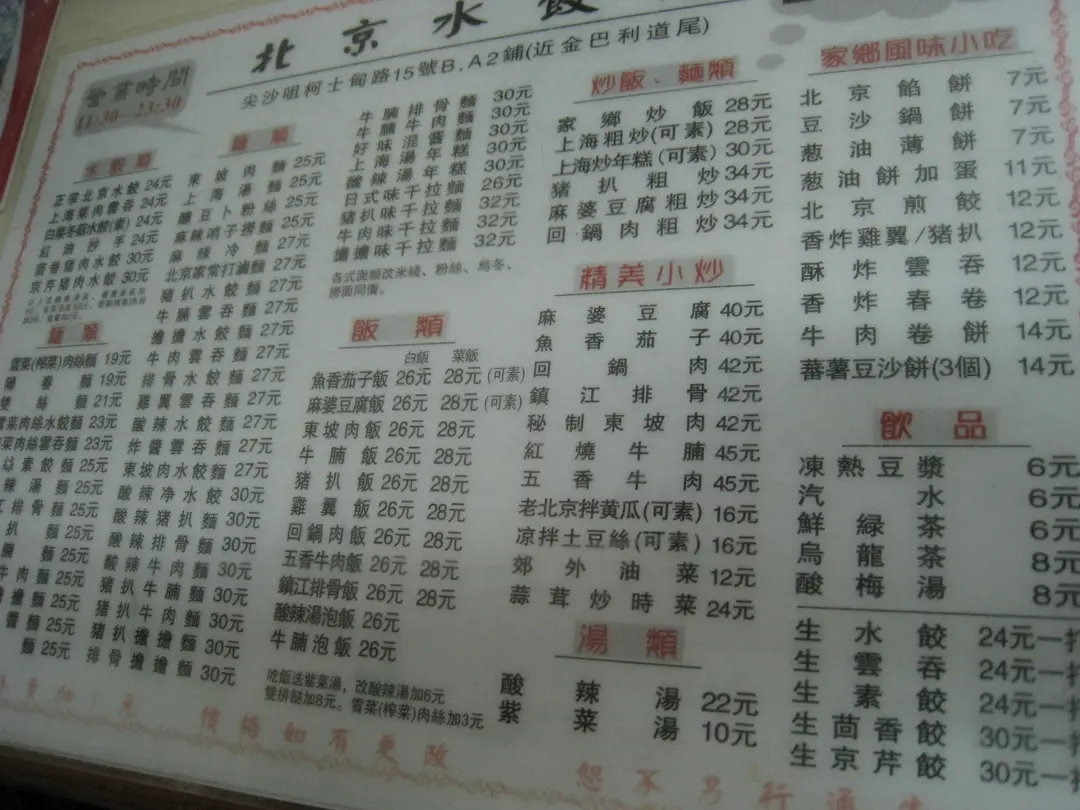 北京水餃
尖沙咀柯士甸路15號B,A2鋪(近金巴利道尾)
營業時間
11:30—23:30
水餃類
正宗北京水餃 24元
上海菜肉雲吞 24元
白菜冬菇水餃(素) 24元
紅油抄手 24元
茴香豬肉水餃 30元
京芹豬肉水餃 30元
麵類
雪菜(榨菜)肉絲麵 19元
陽春麵 19元
雙絲麵 21元
雪菜肉絲水餃麵 23元
菜肉絲雲吞麵 23元
素餃麵 25元
辣湯麵 25元
排骨麵 25元
扒麵 25元
腩麵 25元
牛肉麵 25元
擔麵 25元
醬麵 25元
麵 25元
麵類
東坡肉麵 25元
上海湯麵 25元
釀豆卜粉絲 25元
麻辣哨子撈麵 25元
麻辣冷麵 27元
北京家常打滷麵 27元
豬扒水餃麵 27元
牛腩雲吞麵 27元
擔擔水餃麵 27元
牛肉雲吞麵 27元
排骨水餃麵 27元
雞翼雲吞麵 27元
酸辣水餃麵 27元
炸醬雲吞麵 27元
東坡肉水餃麵 27元
酸辣净水餃 30元
酸辣豬扒麵 30元
酸辣排骨麵 30元
酸辣牛肉麵 30元
豬扒牛腩麵 30元
豬扒牛肉麵 30元
豬扒擔擔麵 30元
排骨擔擔麵 30元
牛腩排骨麵 30元
牛腩牛肉麵 30元
好味混醬麵 30元
上海湯年糕 30元
酸辣湯年糕 30元
日式味千拉麵 26元
豬扒味千拉麵 32元
牛肉味千拉麵 32元
擔擔味千拉麵 32元
各式面類改米綫、粉絲、烏冬、
撈面同價。
飯類
白飯 菜飯
魚香茄子飯 26元 28元(可素)
麻婆豆腐飯 26元 28元(可素)
東坡肉飯 26元 28元
牛腩飯 26元 28元
豬扒飯 26元 28元
雞翼飯 26元 28元
回鍋肉飯 26元 28元
五香牛肉飯 26元 28元
鎮江排骨飯 26元 28元
酸辣湯泡飯 26元
牛腩泡飯 26元
吃飯送紫菜湯，改酸辣湯加6元
雙拼餸加8元。雪菜(榨菜)肉絲加3元
炒飯、麵類
家鄉炒飯 28元
上海粗炒(可素) 28元
上海炒年糕(可素) 30元
豬扒粗炒 34元
麻婆豆腐粗炒 34元
回鍋肉粗炒 34元
精美小炒
麻婆豆腐 40元
魚香茄子 40元
回鍋肉 42元
鎮江排骨 42元
秘制東坡肉 42元
紅燒牛腩 45元
五香牛肉 45元
老北京拌黃瓜(可素) 16元
凉拌土豆絲(可素) 16元
郊外油菜 12元
蒜茸炒時菜 24元
湯類
酸辣湯 22元
紫菜湯 10元
家鄉風味小吃
北京餡餅 7元
豆沙鍋餅 7元
葱油薄餅 7元
葱油餅加蛋 11元
北京煎餃 12元
香炸雞翼/豬扒 12元
酥炸雲吞 12元
香炸春卷 12元
牛肉卷餅 14元
蕃薯豆沙餅(3個) 14元
飲品
凍熱豆漿 6元
汽水 6元
鮮緑茶 6元
烏龍茶 8元
酸梅湯 8元
生水餃 24元一打
生雲吞 24元一打
生素餃 24元一打
生茴香餃 30元一打
生京芹餃 30元一打
價格如有更改
恕不另行通